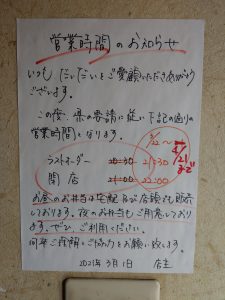 営業時間のお知らせ
いつも だいだいをご愛顧いただきありがとう
ございます。
この度、県の要請に従い下記の通りの
営業時間となります。
3/22〜
ラストオーダー 20:30 21:30
閉店 21:00 22:00
4/21
まで
お昼のお弁当は宅配及び店頭でも販売
しております。夜のお弁当もご用意しており
ます。ぜひ、ご利用ください。
何卒ご理解とご協力をお願い致します。
2021年3月1日 店主